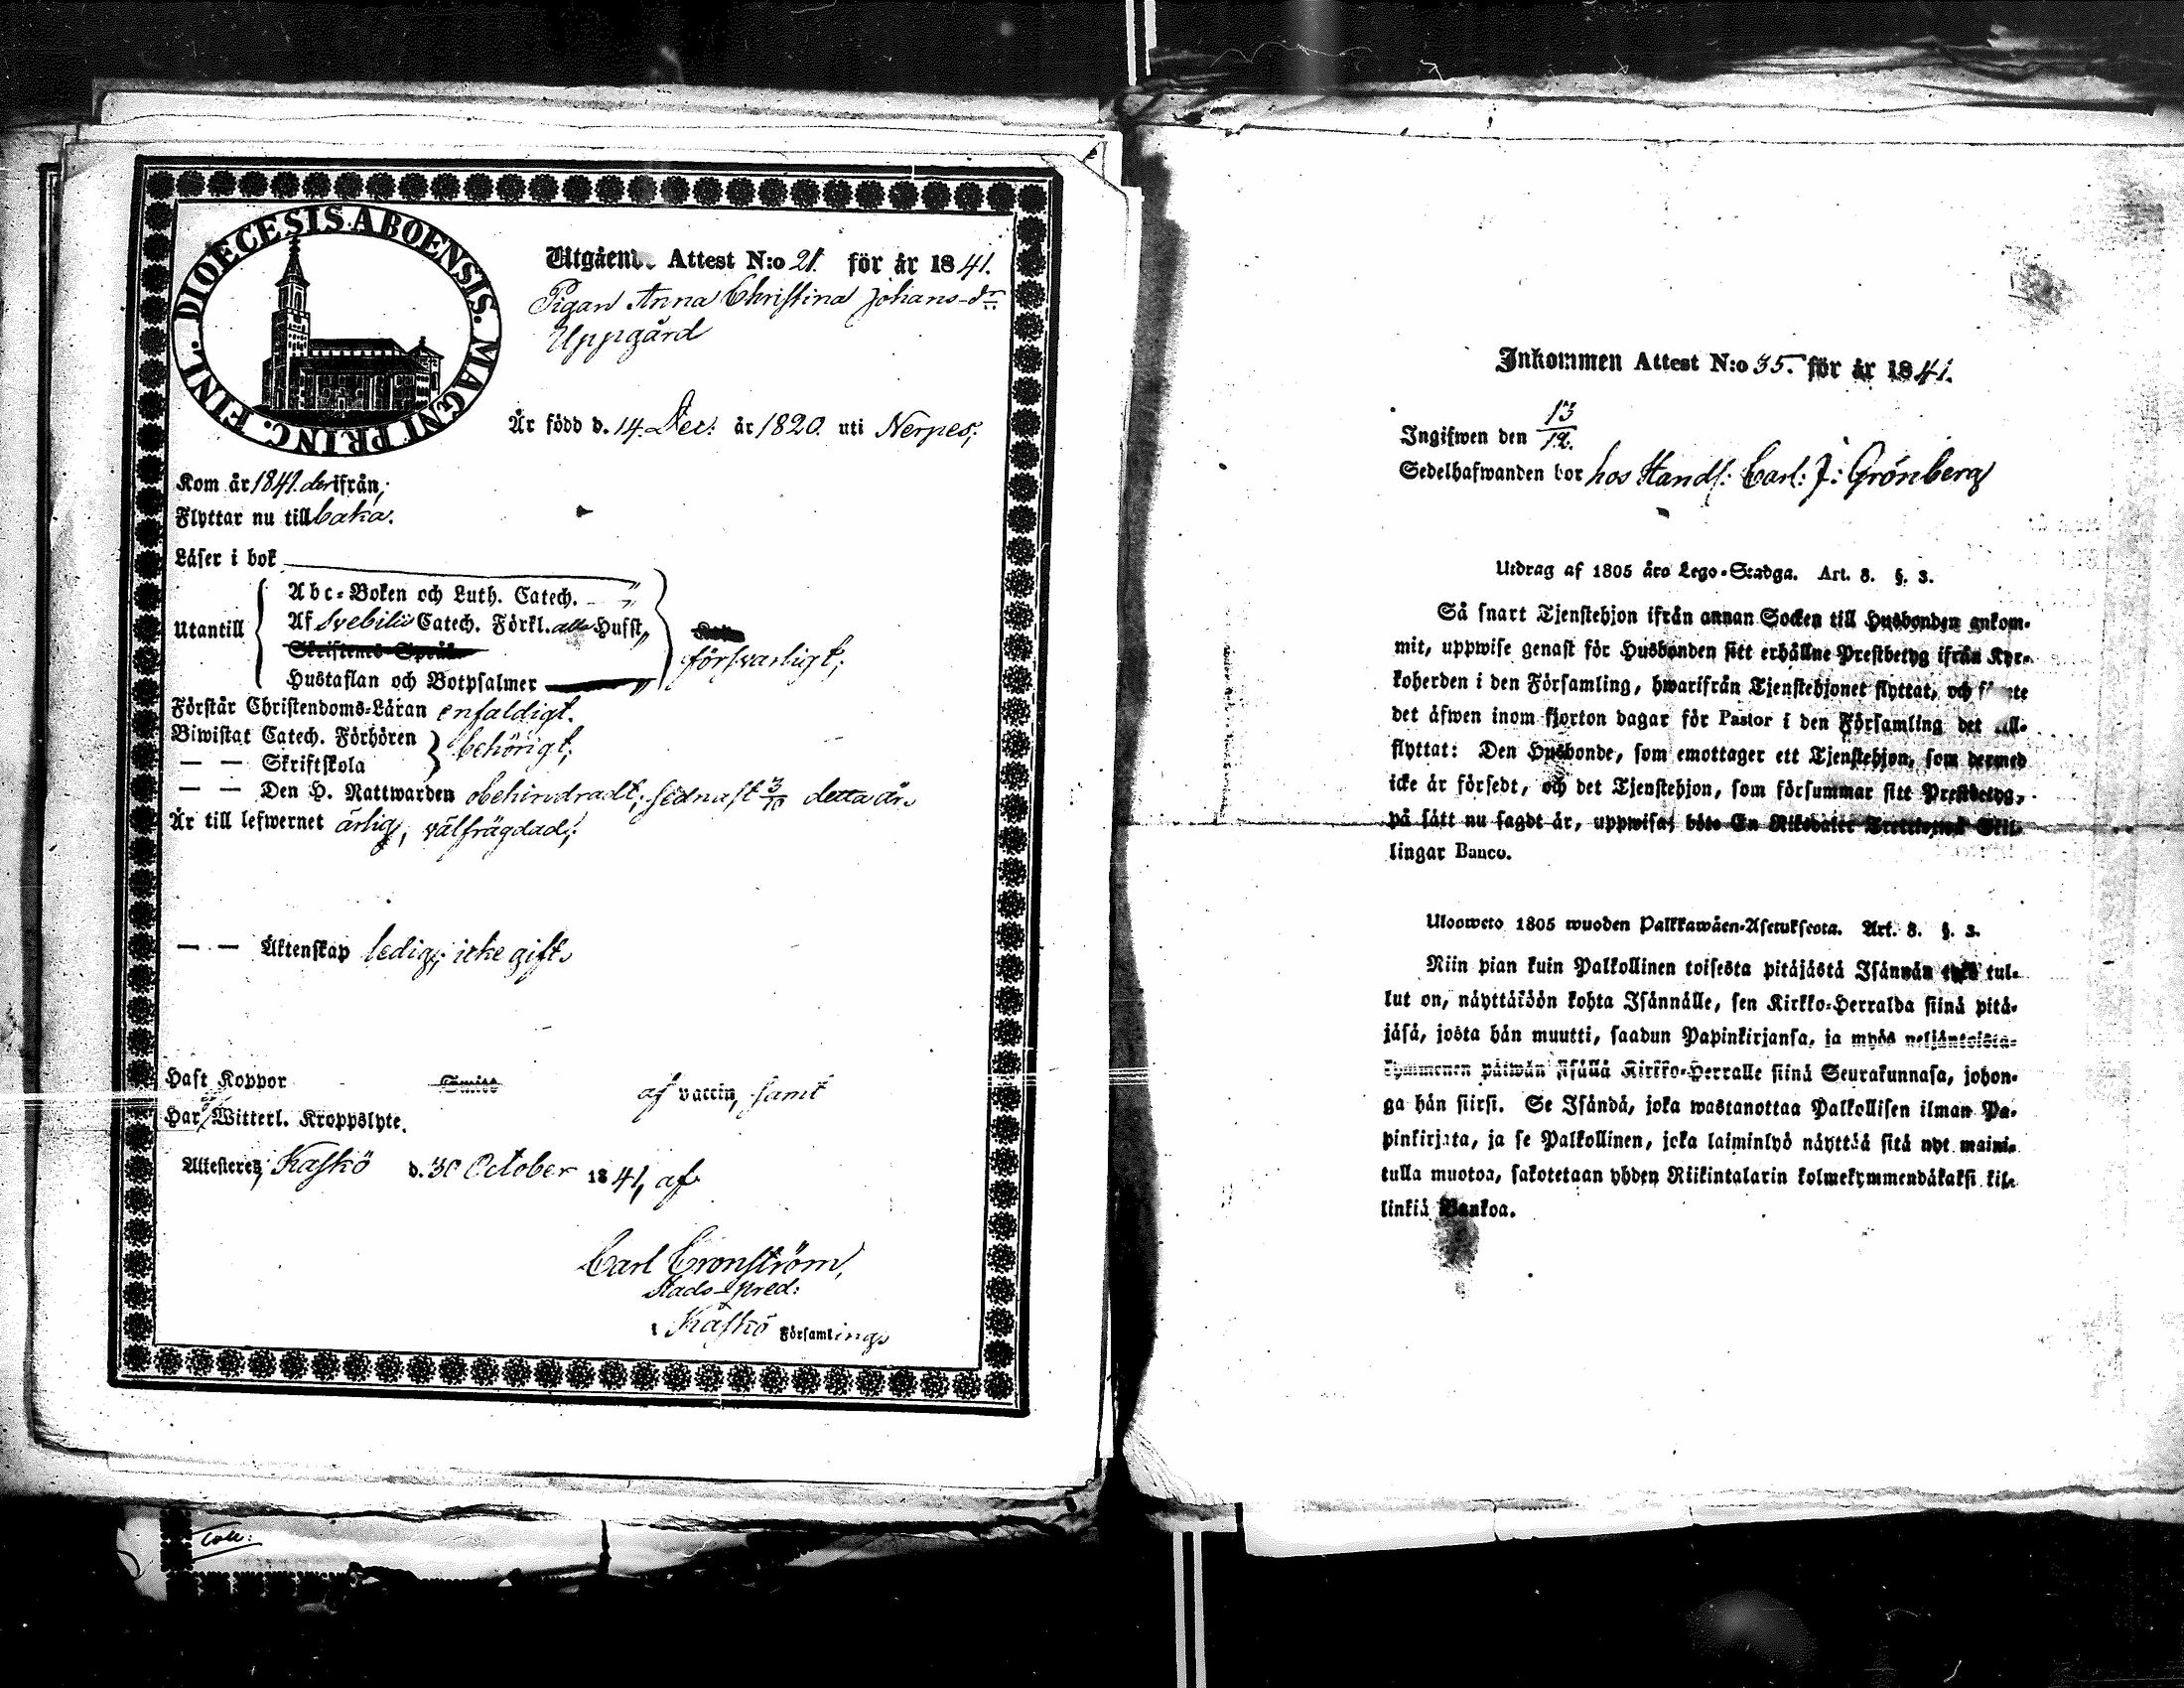 DIOECESIS ABOENSIS. MAGNI PRINC. FINL.
Utgående Attest N:o 21. för år 1841.
Pigan Anna Christina Johans-dr
Uppgård
Är född d. 14. Dec: år 1820. uti Nerpes;
Kom år 1841. derifrån;
Flyttar nu tillbaka.
Läser i bok
Utantill
Abc-Boken och Luth. Catech. „
Af Svebilii Catech. Förkl. alla Husst „
Skriftenes Språk
Hustaflan och Botpsalmer „
försvarligt;
Förstår Christendoms-Läran enfaldigt.
Biwistat Catech. Förhören
— — Skriftskola
behörigt;
— — Den H. Nattwarden obehindradt; sednast 3/10 detta år.
Är till lefwernet ärlig, välfrägdad;
— — Äktenskap ledig, icke gift.
Haft Koppor af vaccin, samt
Har ej Witterl. Kroppslyte.
Attesterer, Kaskö d. 30 October 1841, af
Carl Cronström,
Stads-pred:
i Kaskö Församlings
Coll:
Inkommen Attest N:o 35. för år 1841.
Ingifwen den 13/12.
Sedelhafwanden bor hos Handl: Carl: J: Grönberg
Utdrag af 1805 års Lego-Stadga. Art. 8. §. 3.
Så snart Tjenstehjon ifrån annan Socken till Husbonden ankom-
mit, uppwise genast för Husbonden sitt erhållne Prestbetyg ifrån Kyr-
koherden i den Församling, hwarifrån Tjenstehjonet flyttat, och förete
det äfwen inom fjorton dagar för Pastor i den Församling det till-
flyttat: Den Husbonde, som emottager ett Tjenstehjon, som dermed
icke är försedt, och det Tjenstehjon, som försummar sitt Prestbetyg,
på sätt nu sagdt är, uppwisa, böte En Riksdaler Trettiotwå Skil-
lingar Banco.
Uloosweto 1805 wuoden Palkkawäen-Asetuksesta. Art. 8. §. 3.
Niin pian kuin Palkollinen toisesta pitäjästä Isännän tykö tul-
lut on, näyttäköön kohta Isännälle, sen Kirkko-Herralda siinä pitä-
jäsä, josta hän muutti, saadun Papinkirjansa, ja myös neljäntoista-
kymmenen päiwän sisällä Kirkko-Herralle siinä Seurakunnasa, johon-
ga hän siirsi. Se Isändä, joka wastanottaa Palkollisen ilman Pa-
pinkirjata, ja se Palkollinen, joka laiminlyö näyttää sitä nyt maini-
tulla muotoa, sakotetaan yhden Riikintalarin kolmekymmendäkaksi kil-
linkiä Bankoa.